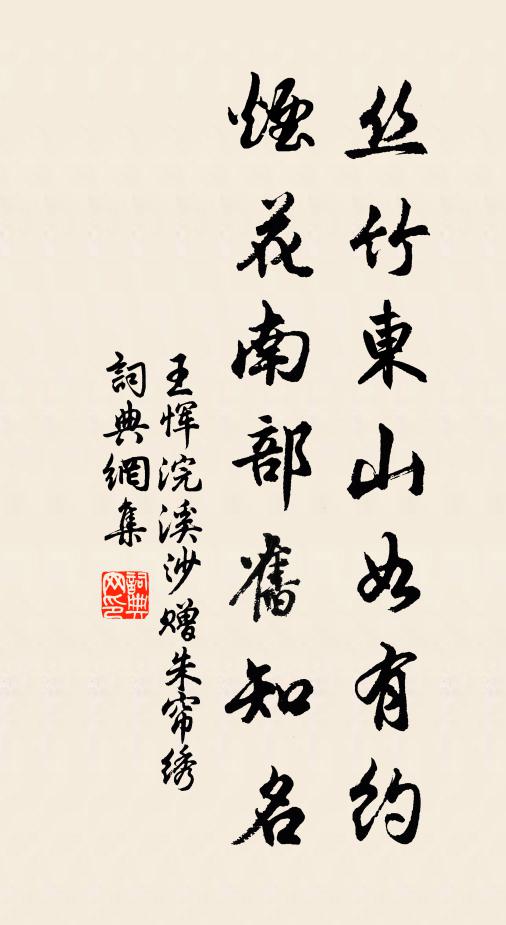 丝竹東山如有约
煙花南部舊知名
王恽浣溪沙赠朱帘绣
詞典網集
詞典网印